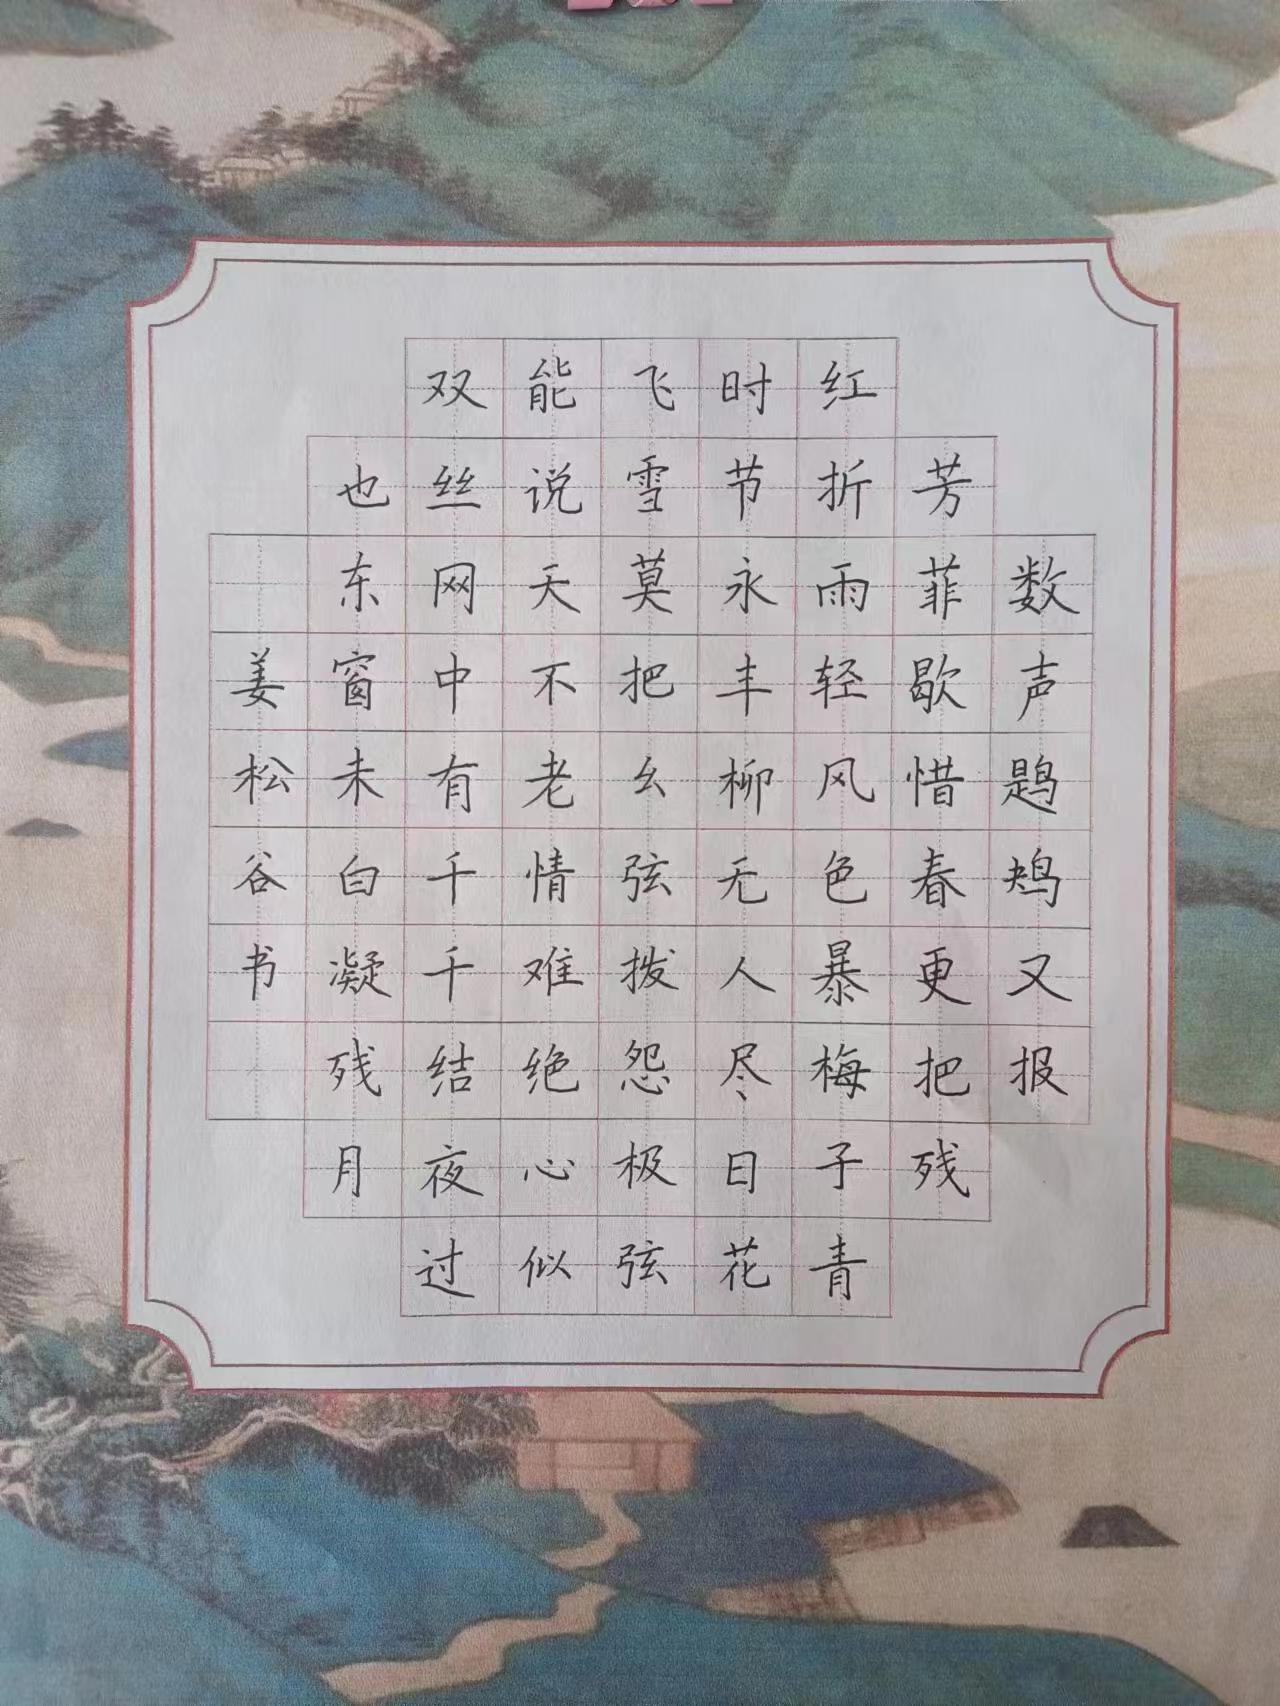 数声鶗鴂又报
芳菲歇惜春更把残
红折雨轻风色暴梅子青
时节永丰柳无人尽日花
飞雪莫把幺弦拨怨极弦
能说天不老情难绝心似
双丝网中有千千结夜过
也东窗未白凝残月
姜松谷书